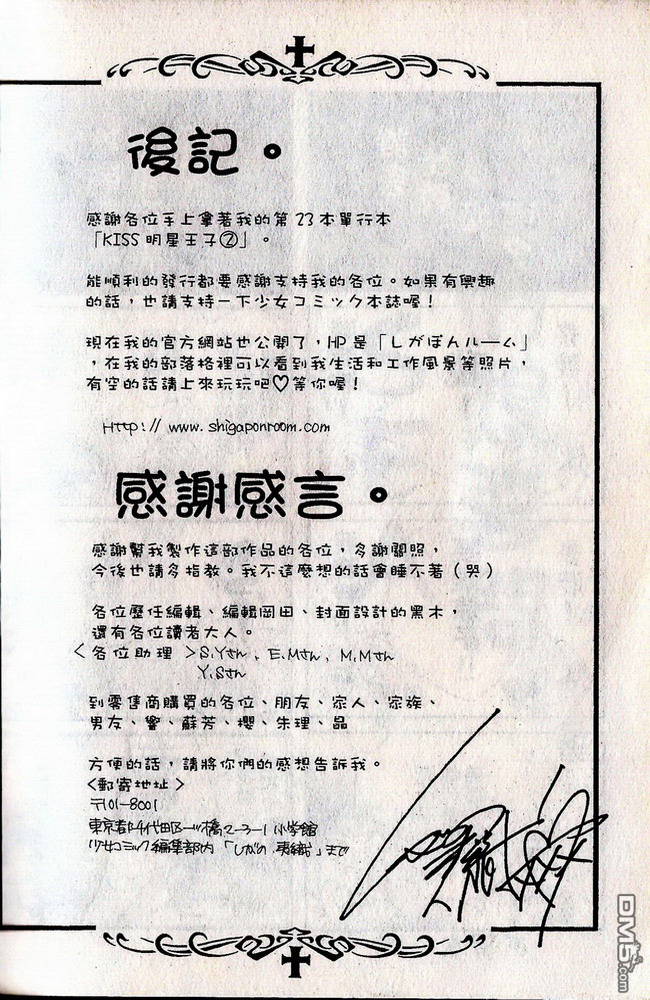 後記。
感謝各位手上拿著我的第23本單行本
「KISS明星王子②」。
能順利的發行都要感謝支持我的各位。如果有興趣
的話，也請支持一下少女コミック本誌喔！
現在我的官方網站也公開了，HP是「しがぽんルーム」
，在我的部落格裡可以看到我生活和工作風景等照片，
有空的話請上來玩玩吧♡等你喔！
Http:// www.shigaponroom.com
感謝感言。
感謝幫我製作這部作品的各位，多謝關照，
今後也請多指教。我不這麼想的話會睡不著（哭）
各位歷任編輯、編輯岡田、封面設計的黑木，
還有各位讀者大人。
＜各位助理＞S.Yさん、E.Mさん、M.Mさん
Y.Sさん
到零售商購買的各位、朋友、家人、家族、
男友、響、蘇芳、櫻、朱理、晶
方便的話，請將你們的感想告訴我。
＜郵寄地址＞
〒101-8001
東京都千代田区一ツ橋2-3-1 小学館
少女コミック編集部内「しがの 夷織」まで
DM5.com